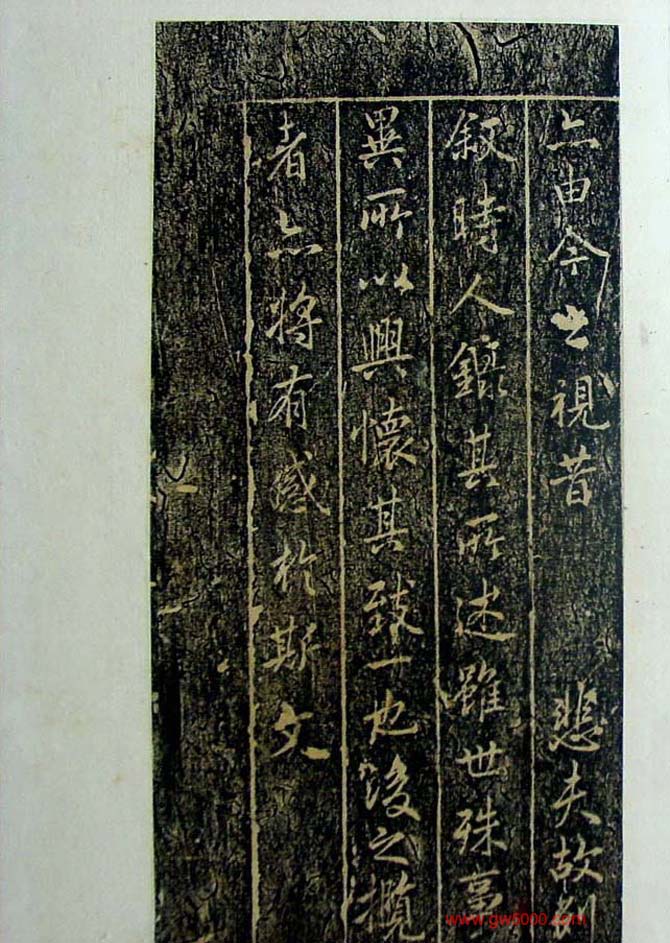 亦由今之視昔 悲夫故列
叙時人錄其所述雖世殊事
異所以興懷其致一也後之攬
者亦將有感於斯文
www.gw5000.com